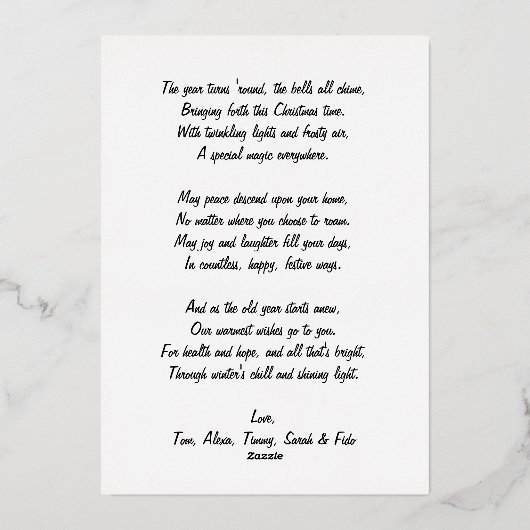 The year turns 'round, the bells all chime,
Bringing forth this Christmas time.
With twinkling lights and frosty air,
A special magic everywhere.
May peace descend upon your home,
No matter where you choose to roam.
May joy and laughter fill your days,
In countless, happy, festive ways.
And as the old year starts anew,
Our warmest wishes go to you.
For health and hope, and all that's bright,
Through winter's chill and shining light.
Love,
Tom, Alexa, Timmy, Sarah & Fido
Zazzle